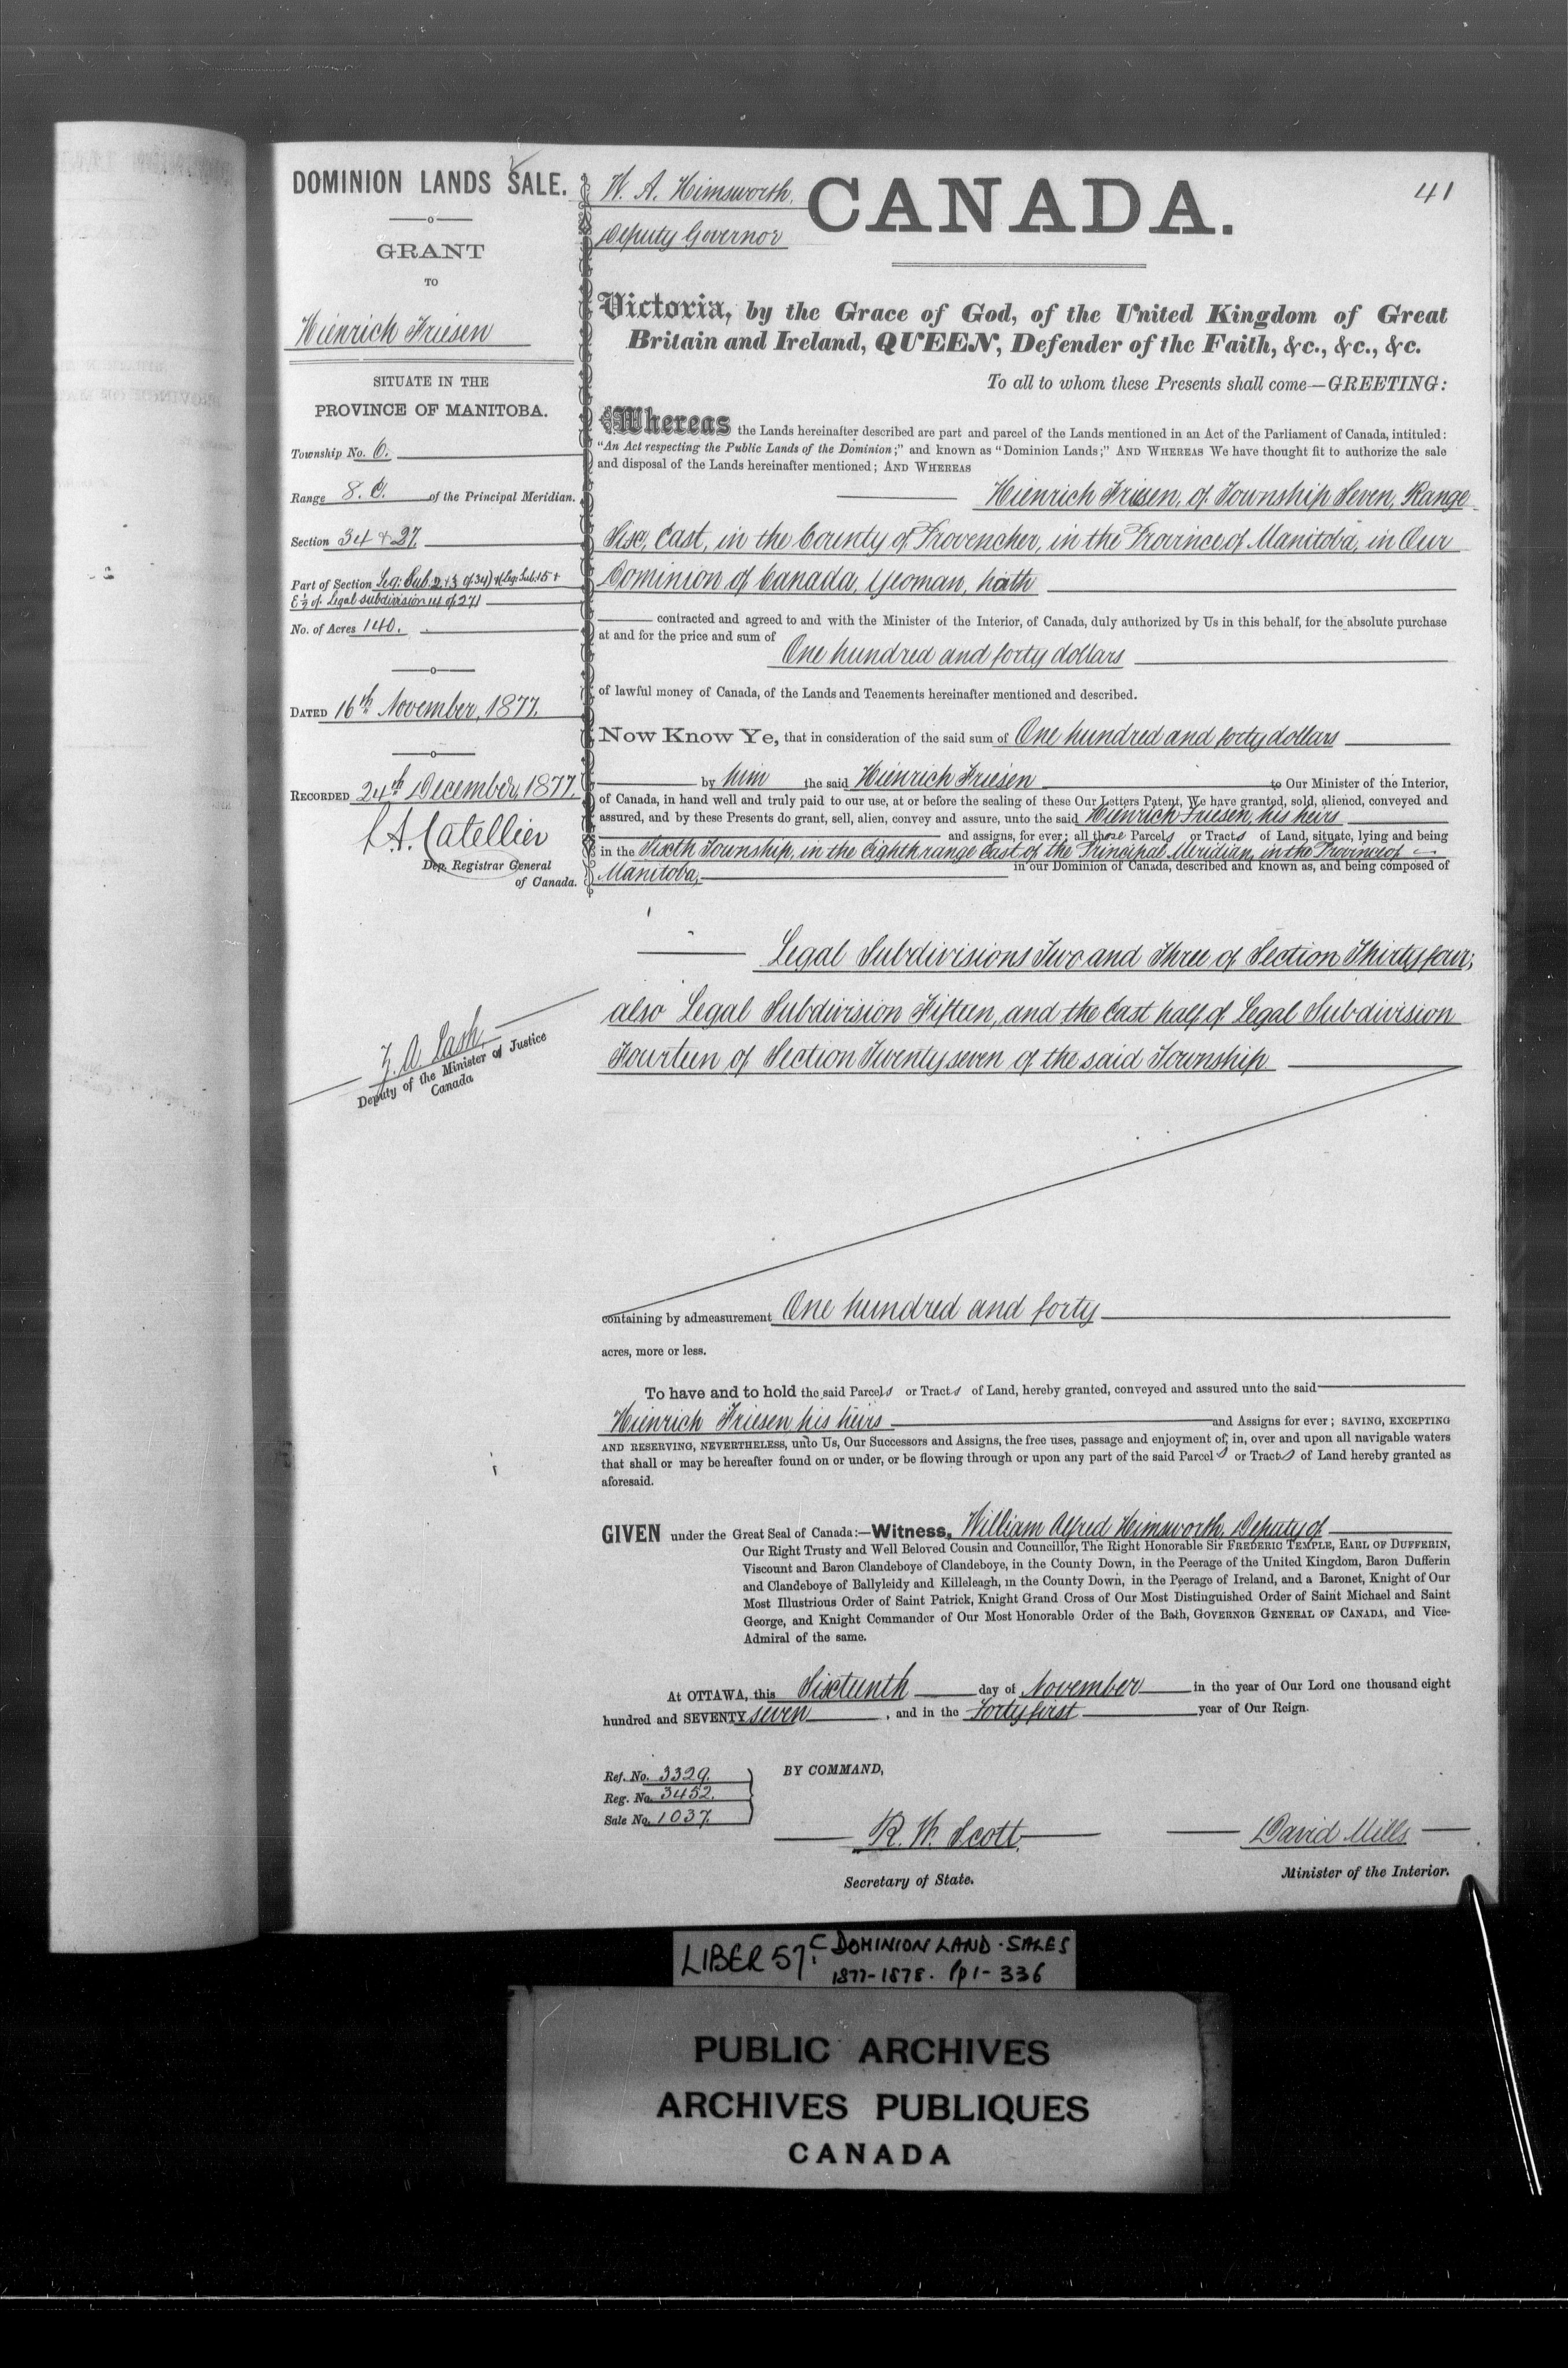 41
DOMINION LANDS SALE.
GRANT
TO
Heinrich Friesen
SITUATE IN THE
PROVINCE OF MANITOBA.
Township No. 6.
Range 8. E. of the Principal Meridian.
Section 34 & 27.
Part of Section Leg: Sub. 2 & 3 of 34) & (Leg: Sub: 15 &
E ½ of Legal subdivision 14 of 27)
No. of Acres 140.
DATED 16th November, 1877.
RECORDED 24th December, 1877.
L. A. Catellier
Dep. Registrar General
of Canada.
Z. A. Lash.
Deputy of the Minister of Justice
Canada
W. A. Himsworth.
Deputy Governor
CANADA.
Victoria, by the Grace of God, of the United Kingdom of Great
Britain and Ireland, QUEEN, Defender of the Faith, &c., &c., &c.
To all to whom these Presents shall come—GREETING:
Whereas the Lands hereinafter described are part and parcel of the Lands mentioned in an Act of the Parliament of Canada, intituled:
"An Act respecting the Public Lands of the Dominion;" and known as "Dominion Lands;" AND WHEREAS We have thought fit to authorize the sale
and disposal of the Lands hereinafter mentioned; AND WHEREAS
Heinrich Friesen, of Township Seven, Range
Six, East, in the County of Provencher, in the Province of Manitoba, in Our
Dominion of Canada, Yeoman, hath
contracted and agreed to and with the Minister of the Interior, of Canada, duly authorized by Us in this behalf, for the absolute purchase
at and for the price and sum of
One hundred and forty dollars
of lawful money of Canada, of the Lands and Tenements hereinafter mentioned and described.
Now Know Ye, that in consideration of the said sum of One hundred and forty dollars
by him the said Heinrich Friesen to Our Minister of the Interior,
of Canada, in hand well and truly paid to our use, at or before the sealing of these Our Letters Patent, We have granted, sold, aliened, conveyed and
assured, and by these Presents do grant, sell, alien, convey and assure, unto the said Heinrich Friesen, his heirs
and assigns, for ever; all those Parcels or Tracts of Land, situate, lying and being
in the Sixth Township, in the Eighth range East of the Principal Meridian, in the Province of
Manitoba, in our Dominion of Canada, described and known as, and being composed of
Legal Subdivisions Two and Three of Section Thirty four;
also Legal Subdivision Fifteen, and the East half of Legal Subdivision
Fourteen of Section Twenty seven of the said Township
containing by admeasurement One hundred and forty
acres, more or less.
To have and to hold the said Parcels or Tracts of Land, hereby granted, conveyed and assured unto the said
Heinrich Friesen his heirs and Assigns for ever; SAVING, EXCEPTING
AND RESERVING, NEVERTHELESS, unto Us, Our Successors and Assigns, the free uses, passage and enjoyment of, in, over and upon all navigable waters
that shall or may be hereafter found on or under, or be flowing through or upon any part of the said Parcels or Tracts of Land hereby granted as
aforesaid.
GIVEN under the Great Seal of Canada:—Witness, William Alfred Himsworth, Deputy of
Our Right Trusty and Well Beloved Cousin and Councillor, The Right Honorable Sir FREDERIC TEMPLE, EARL OF DUFFERIN,
Viscount and Baron Clandeboye of Clandeboye, in the County Down, in the Peerage of the United Kingdom, Baron Dufferin
and Clandeboye of Ballyleidy and Killeleagh, in the County Down, in the Peerage of Ireland, and a Baronet, Knight of Our
Most Illustrious Order of Saint Patrick, Knight Grand Cross of Our Most Distinguished Order of Saint Michael and Saint
George, and Knight Commander of Our Most Honorable Order of the Bath, GOVERNOR GENERAL OF CANADA, and Vice-
Admiral of the same.
At OTTAWA, this Sixteenth day of November in the year of Our Lord one thousand eight
hundred and SEVENTY seven, and in the Forty first year of Our Reign.
Ref. No. 3329.
Reg. No. 3452.
Sale No. 1037.
BY COMMAND,
R. W. Scott,
Secretary of State.
David Mills
Minister of the Interior.
LIBER 57C: DOMINION LAND SALES
1877-1878. pp 1-336
PUBLIC ARCHIVES
ARCHIVES PUBLIQUES
CANADA